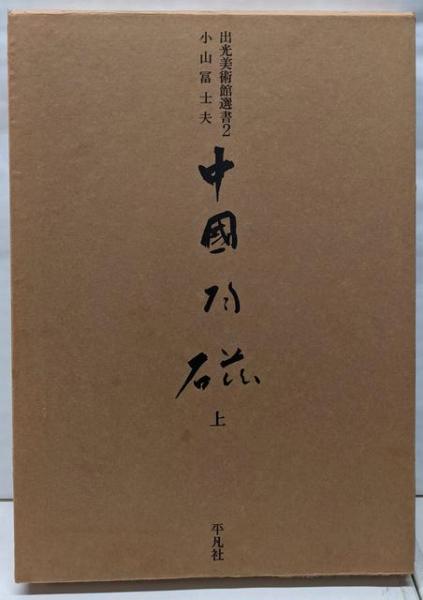 出光美術館選書2
小山冨士夫
中國陶磁
上
平凡社